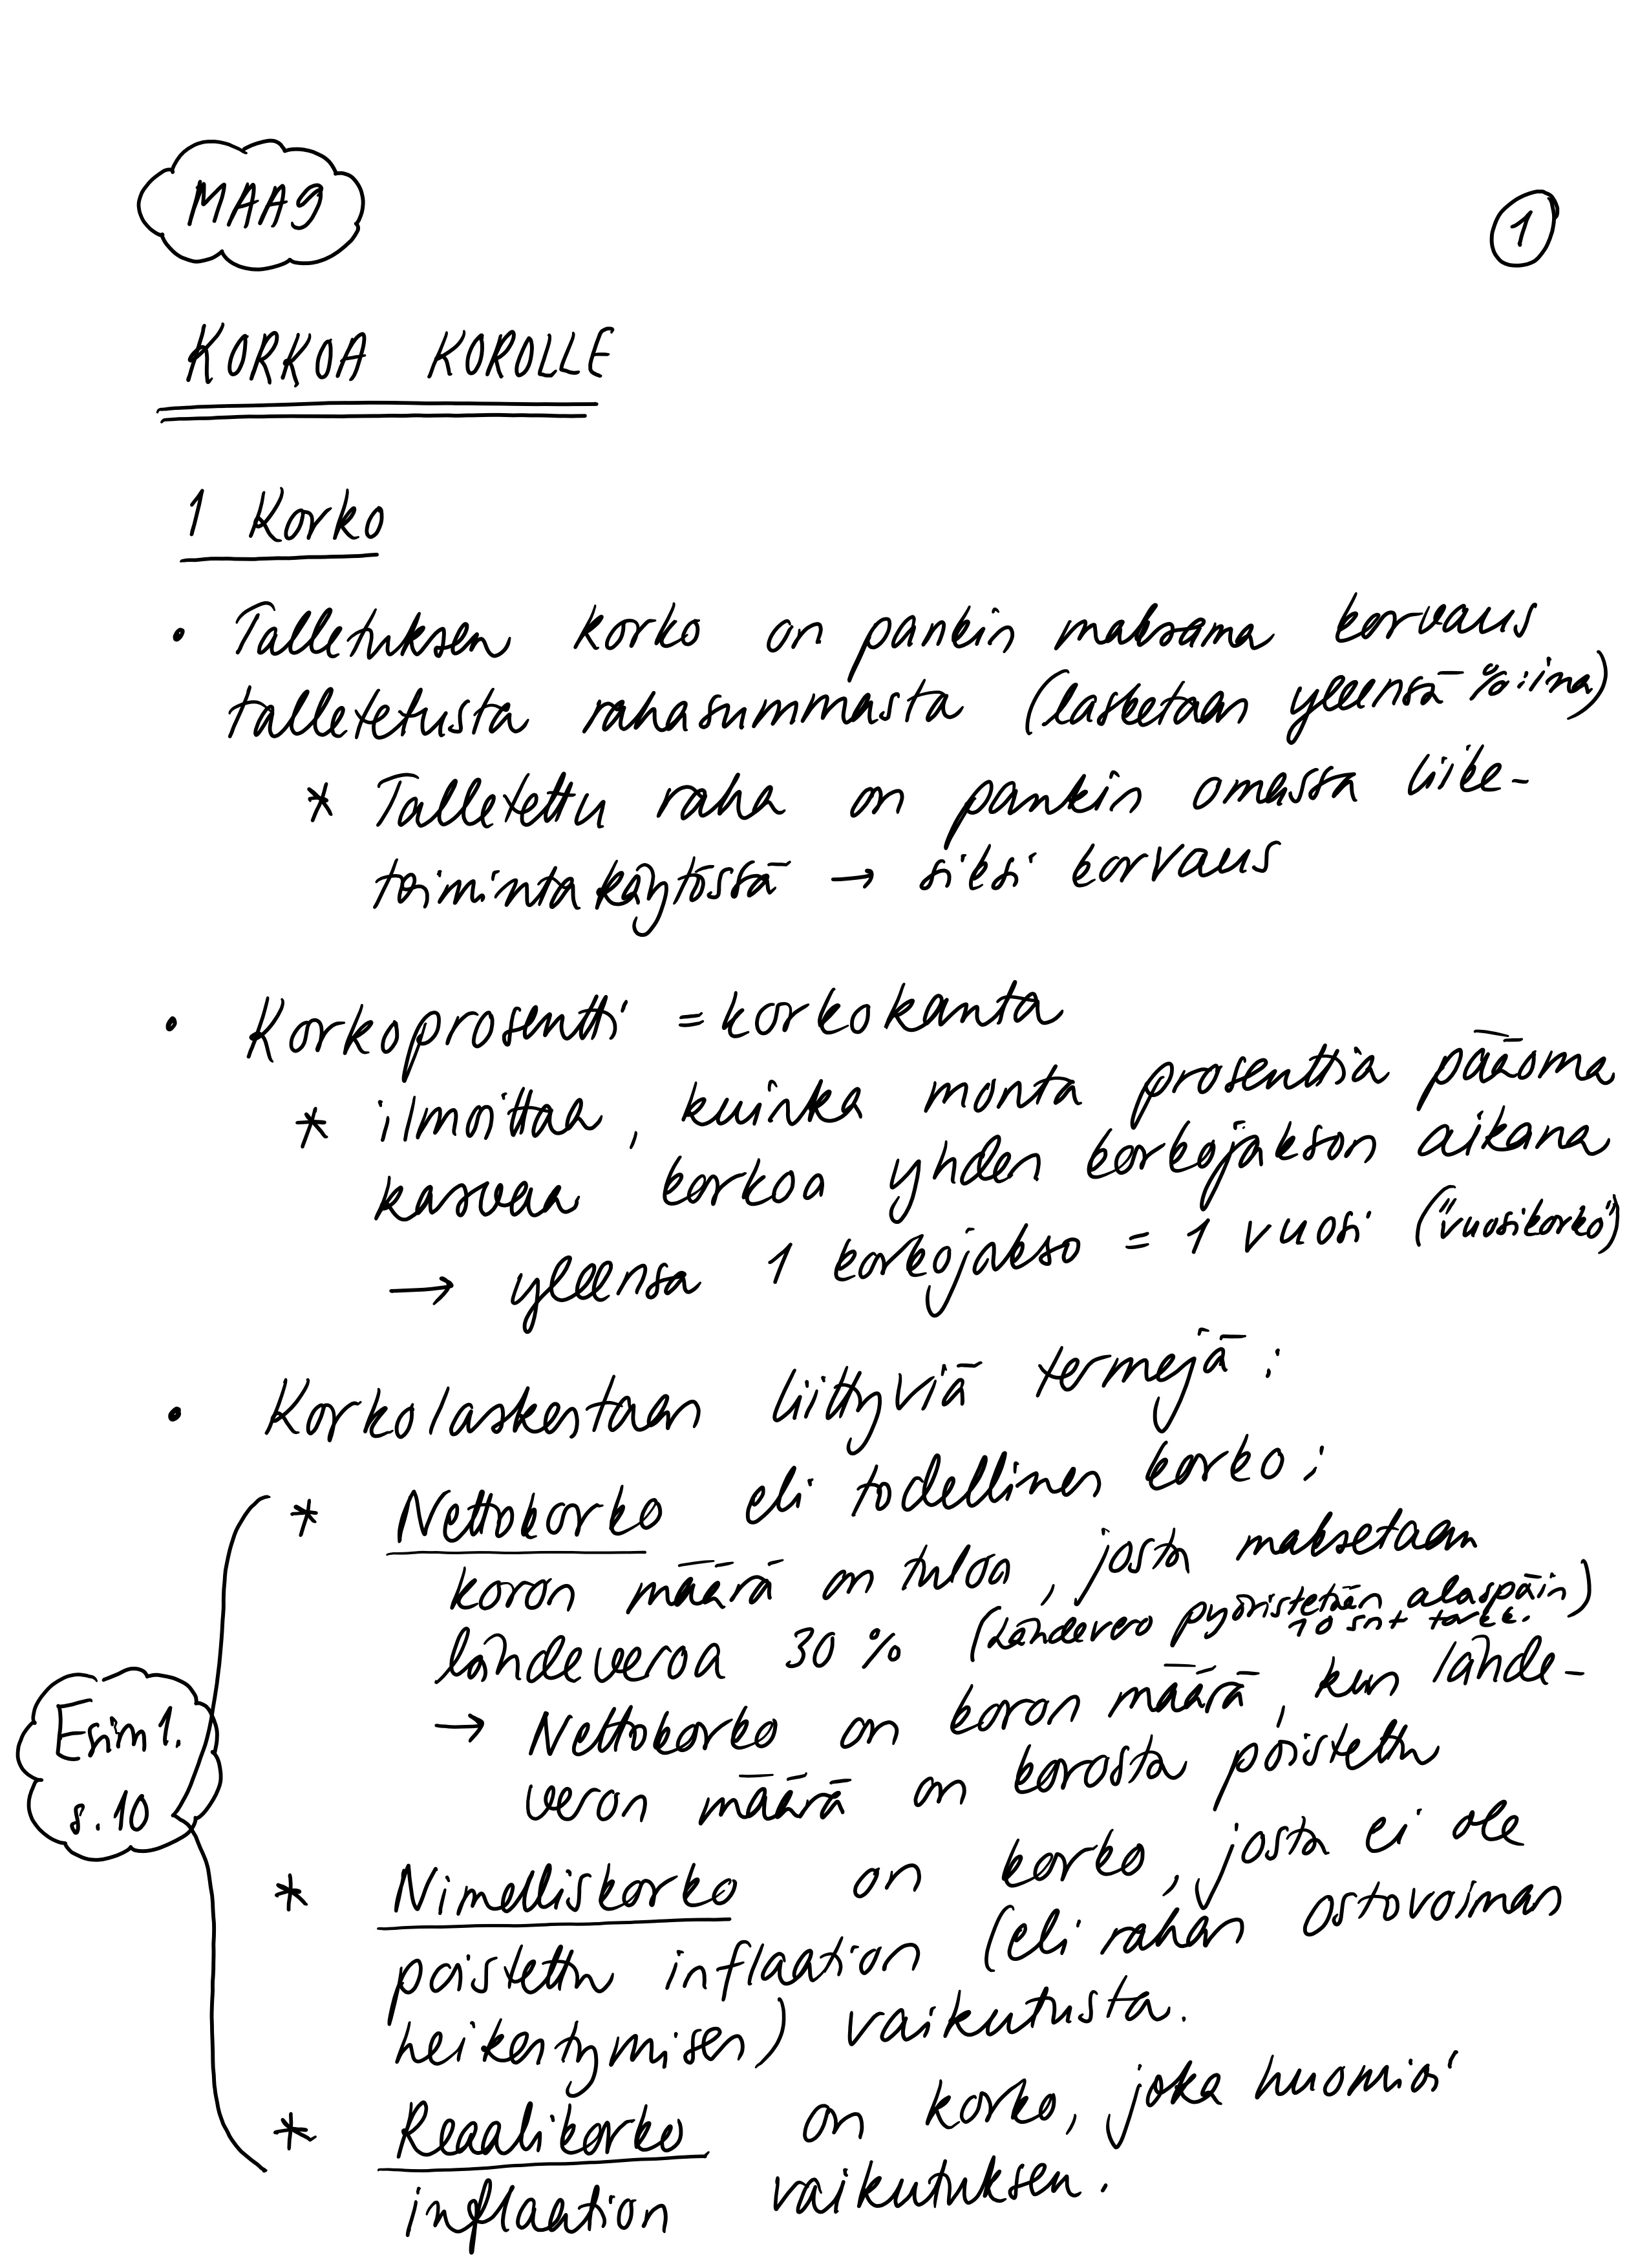 MAA9
1
KORKOA KOROLLE
1 Korko
• Talletuksen korko on pankin maksama korvaus
talletetusta rahasummasta (lasketaan yleensä %:ina)
* Talletettu raha on pankin omassa liike-
toimintakäytössä → siksi korvaus
• Korkoprosentti = korkokanta
* ilmoittaa, kuinka monta prosenttia pääoma
kasvaa korkoa yhden korkojakson aikana
→ yleensa 1 korkojakso = 1 vuosi ("vuosikorko")
• Korkolaskentaan liittyviä termejä:
* Nettokorko eli todellinen korko:
koron määrä on tuloa, josta maksetaan
lähdeveroa 30 % (Lähdevero pyöristetään alaspäin)
10 snt tarkk.
→ Nettokorko on koron määrä, kun lähde-
veron määrä on korosta poistettu
Esim 1.
s. 10
* Nimelliskorko on korko, josta ei ole
poistettu inflaation (eli rahan ostovoiman
heikentymisen) vaikutusta.
* Reaalikorko on korko, joka huomioi
inflaation vaikutuksen.